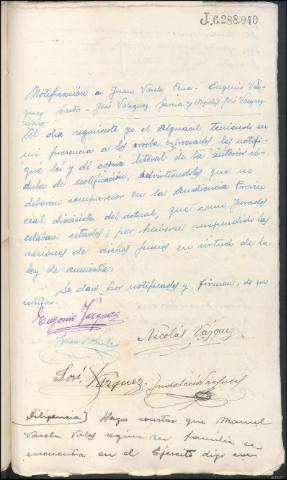 J.6.288.040
Notificación a Juan Varela Rua - Eugenio Váz-
quez Castro - José Vázquez García y José Vázquez
Al día siguiente yo el Alguacil teniendo en
mi presencia a los arriba expresados, les notifi-
que leí y di copia literal de la anterior cé-
dula de notificación, advirtiendoles que no
deberan comparecer en la Audiencia Provin
cial dieciseis del actual, que como Jurados
estaban citados; por haberse suspendido las
sesiones de dichos Juicios en virtud de la
ley de amnistía.
Se dan por notificados y firman, de que
certifico.
Eugenio Vázquez
Nicolás Vázquez
Juan Varela
José Vázquez
Diligencia) Hago constar que Manuel
Varela Valos según su familia se
encuentra en el Ejército digo con